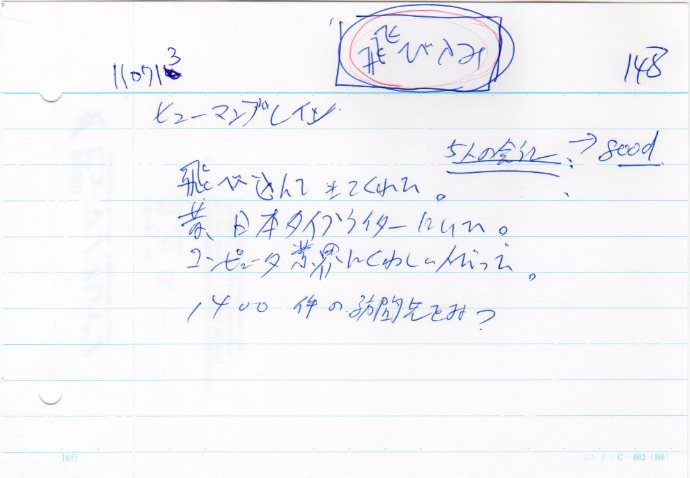 飛び込み
110713
148
ヒューマンブレイン
5人の会社 → good
飛び込んで来てくれた。
昔、日本タイプライターにいた。
コンピュータ業界にくわしい人だった。
1400件の訪問先とみ?
10行
C-602 (B6)